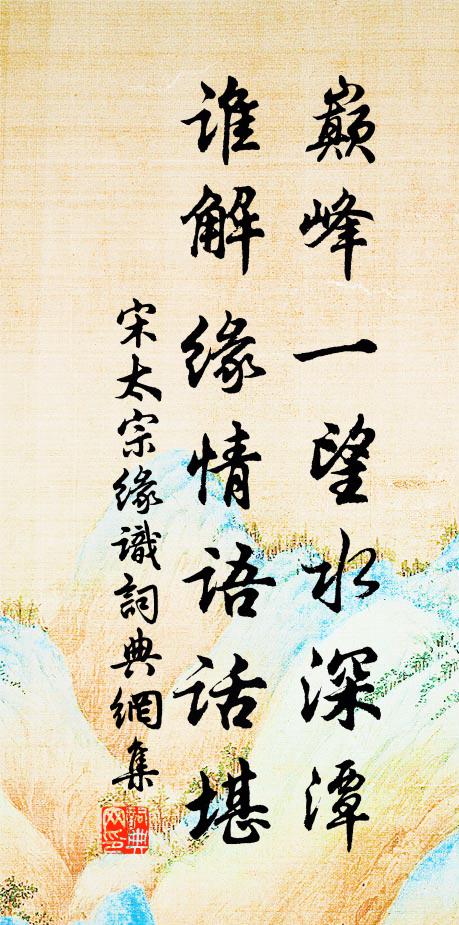 巅峰一望水深潭
谁解缘情语话堪
宋太宗缘識詞典網集
詞典